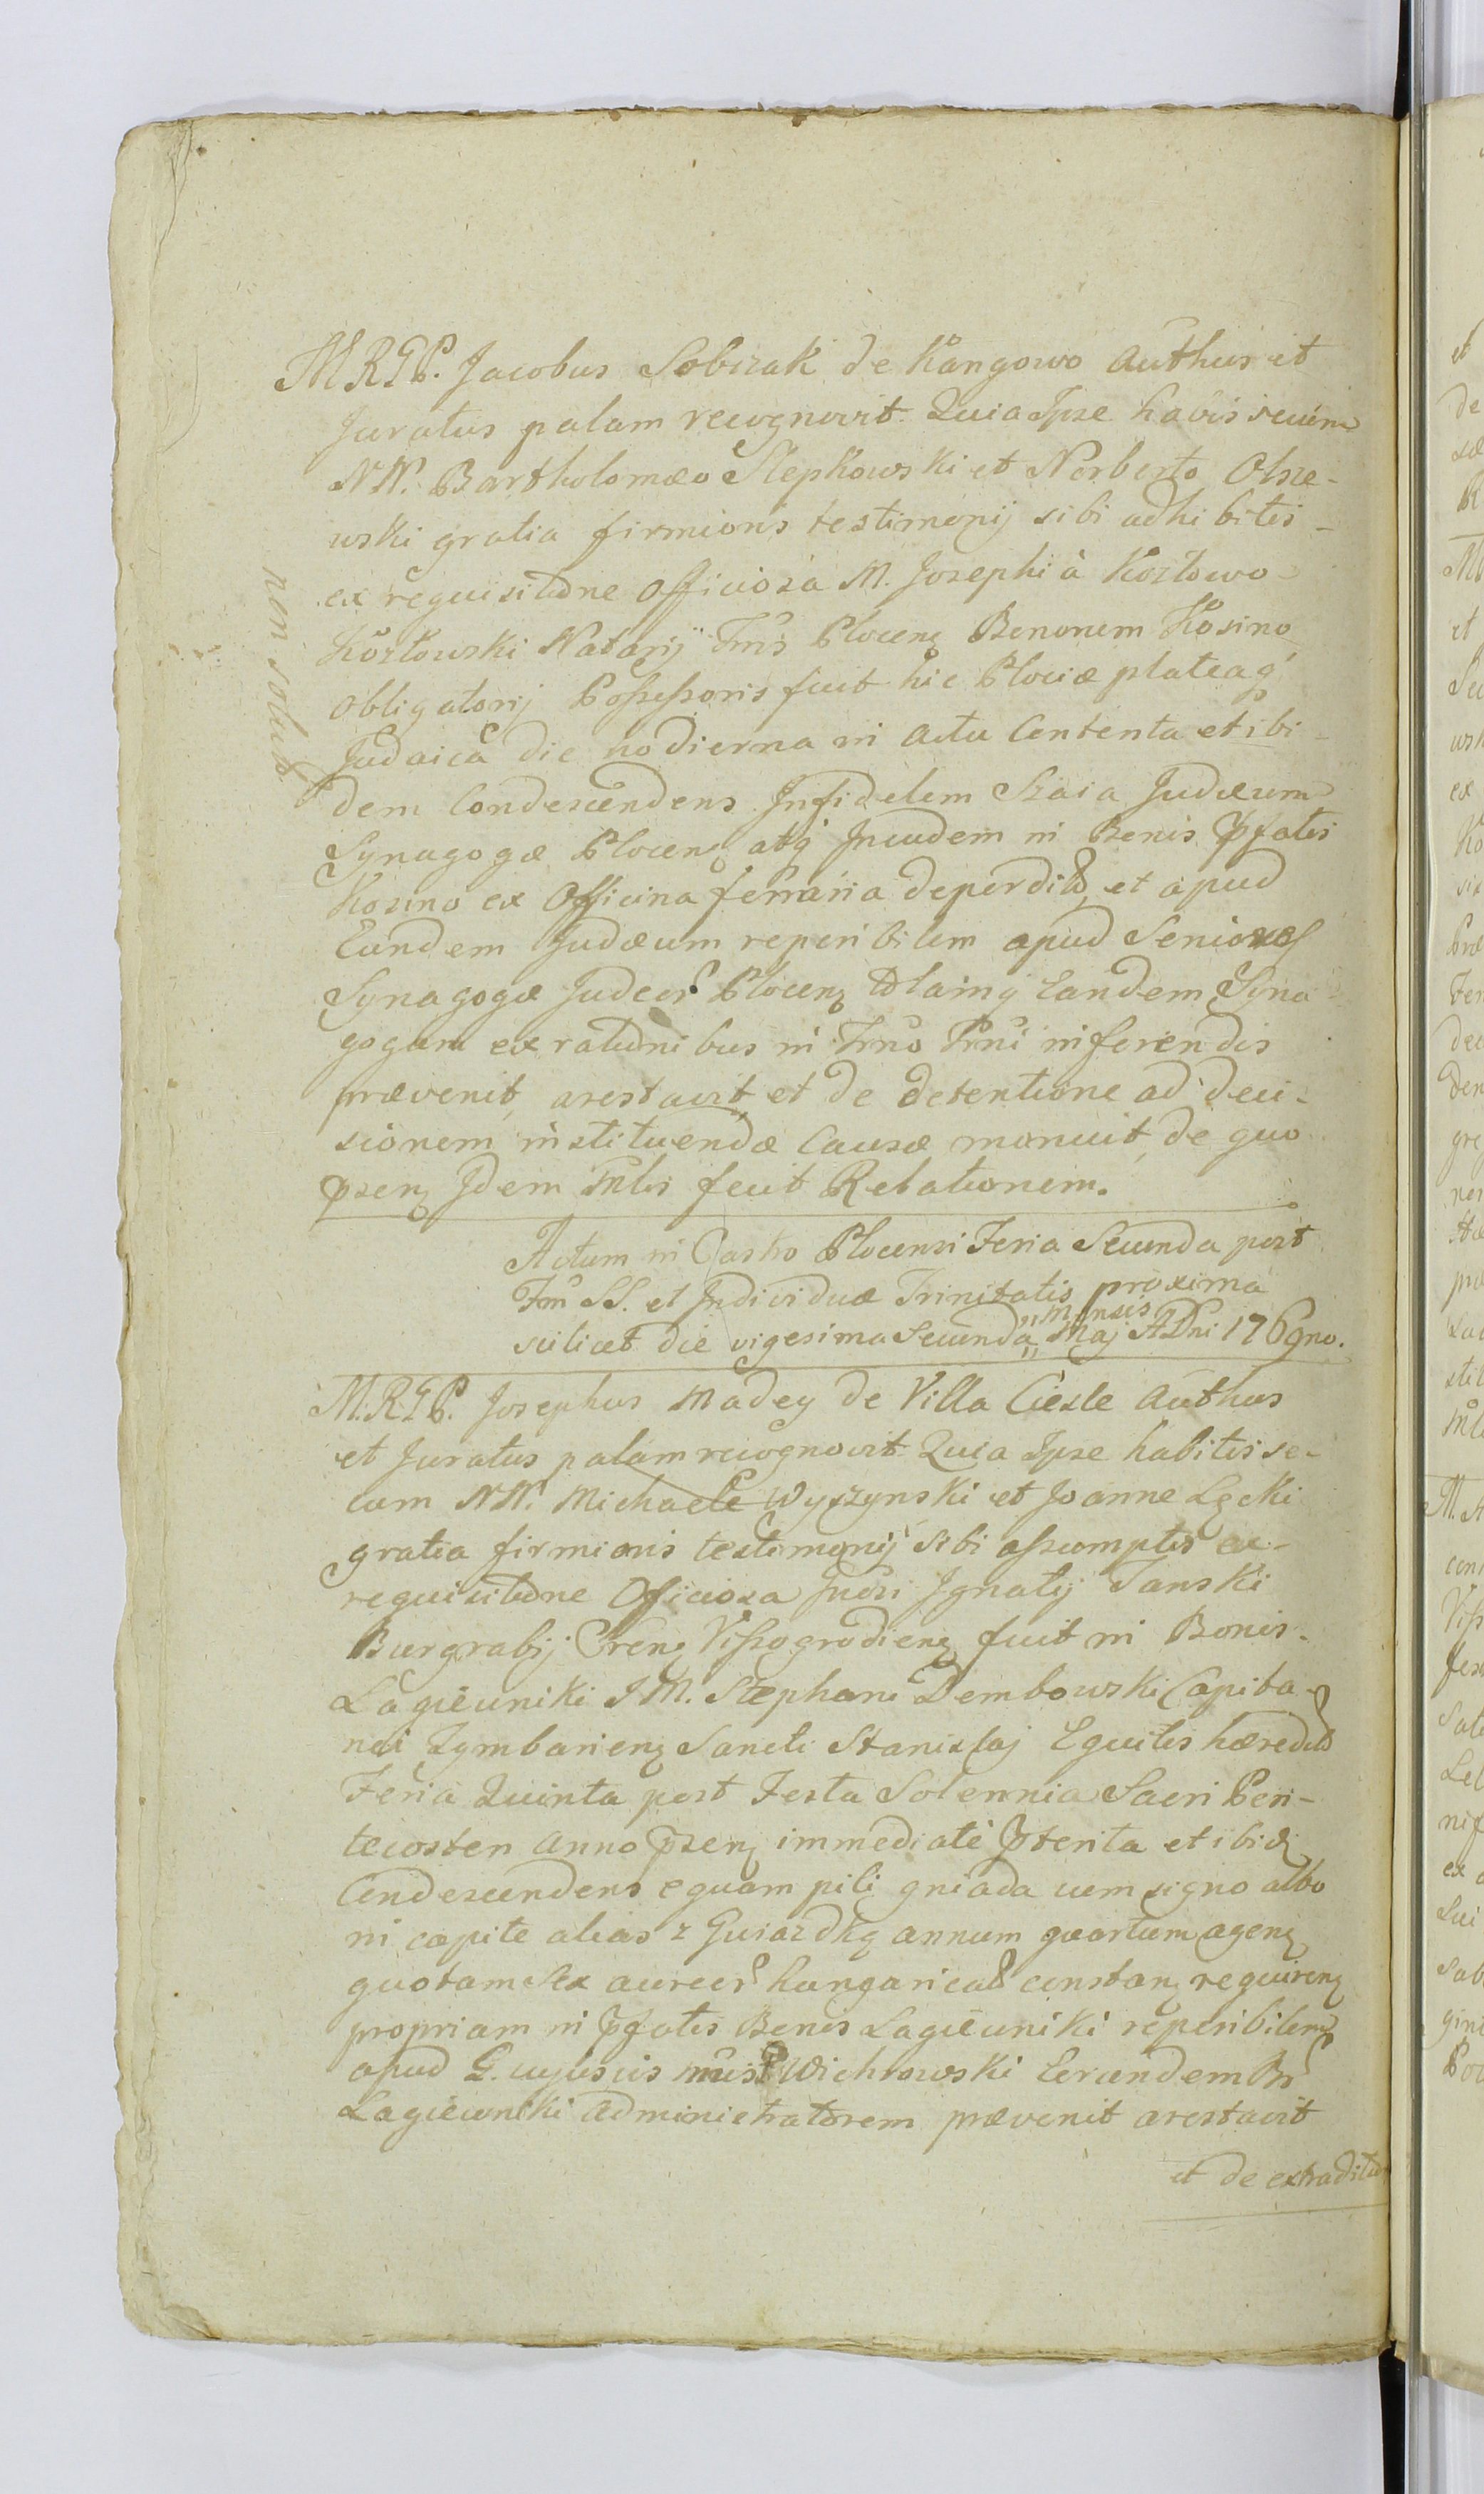 M.R.G.P. Jacobus Sobczak de Kangowo Authus et
Juratus palam recognovit. Quia Ipse habis secum
NN. Bartholomæo Slepkowski et Norberto Olsze-
wski gratia firmioris testimonij sibi adhibitis
ex requisitione Officiosa M. Josephi à Kozłowo
Kozłowski Notarij Trris Plocen Bonorum Kosino
obligatorij Possessoris fuit hic Plociæ plateaq
Judaica die hodierna in Actu Contenta et ibi-
dem Condescendens Infidelem Szaia Judæum
Synagogæ Plocen atq Incudem in Bonis pfatis
Kosino ex Officina ferraria deperditã et apud
Eundem Judæum reperibilem apud Seniores
Synagogæ Judeor Plocen Eandem Syna
gogam ex rationibus in Trno Trni inferendis
prævenit, arestavit, et de detentione ad deci-
sionem instituendæ Causæ monuit, de quo
psen Idem Mlis fecit Relationem.
Actum in Castro Plocensi Feria Secunda post
Fm SS. et Individuæ Trinitatis proxima
scilicet die vigesima Secunda mensis Maj A Dni 176gno.
M.R.G.P. Josephus Madey de Villa Ciesle Authus
et Juratus palam recognovit. Quia Ipse habitis se-
cum NN. Michaele Wyszynski et Joanne Lęcki
gratia firmioris testimonij sibi assumptis ex
requisitione Officiosa Ignatij Tanski
Burgrabij Cren Vissogrodien fuit in Bonis
Łagiewniki I M. Stephani Dembowski Capita-
nei Zymbarien Sancti Stanislaj Equitis hæredit
Feria Quinta post Festa Solennia Sacri Pen-
tecosten Anno psen immediatè pterita et ibid
Condescendens equam pili gniada cum signo albo
in capite alias z Gwiazdką annum quartum agen
quotam Sex aureor hungarical constan requiren
propriam in pfatis Bonis Łagiewniki reperibilem
apud G. cujuscis Wichrowski Eorundem Br
Łagiewniki Administratorem prævenit arestavit
et de extraditio
non solut